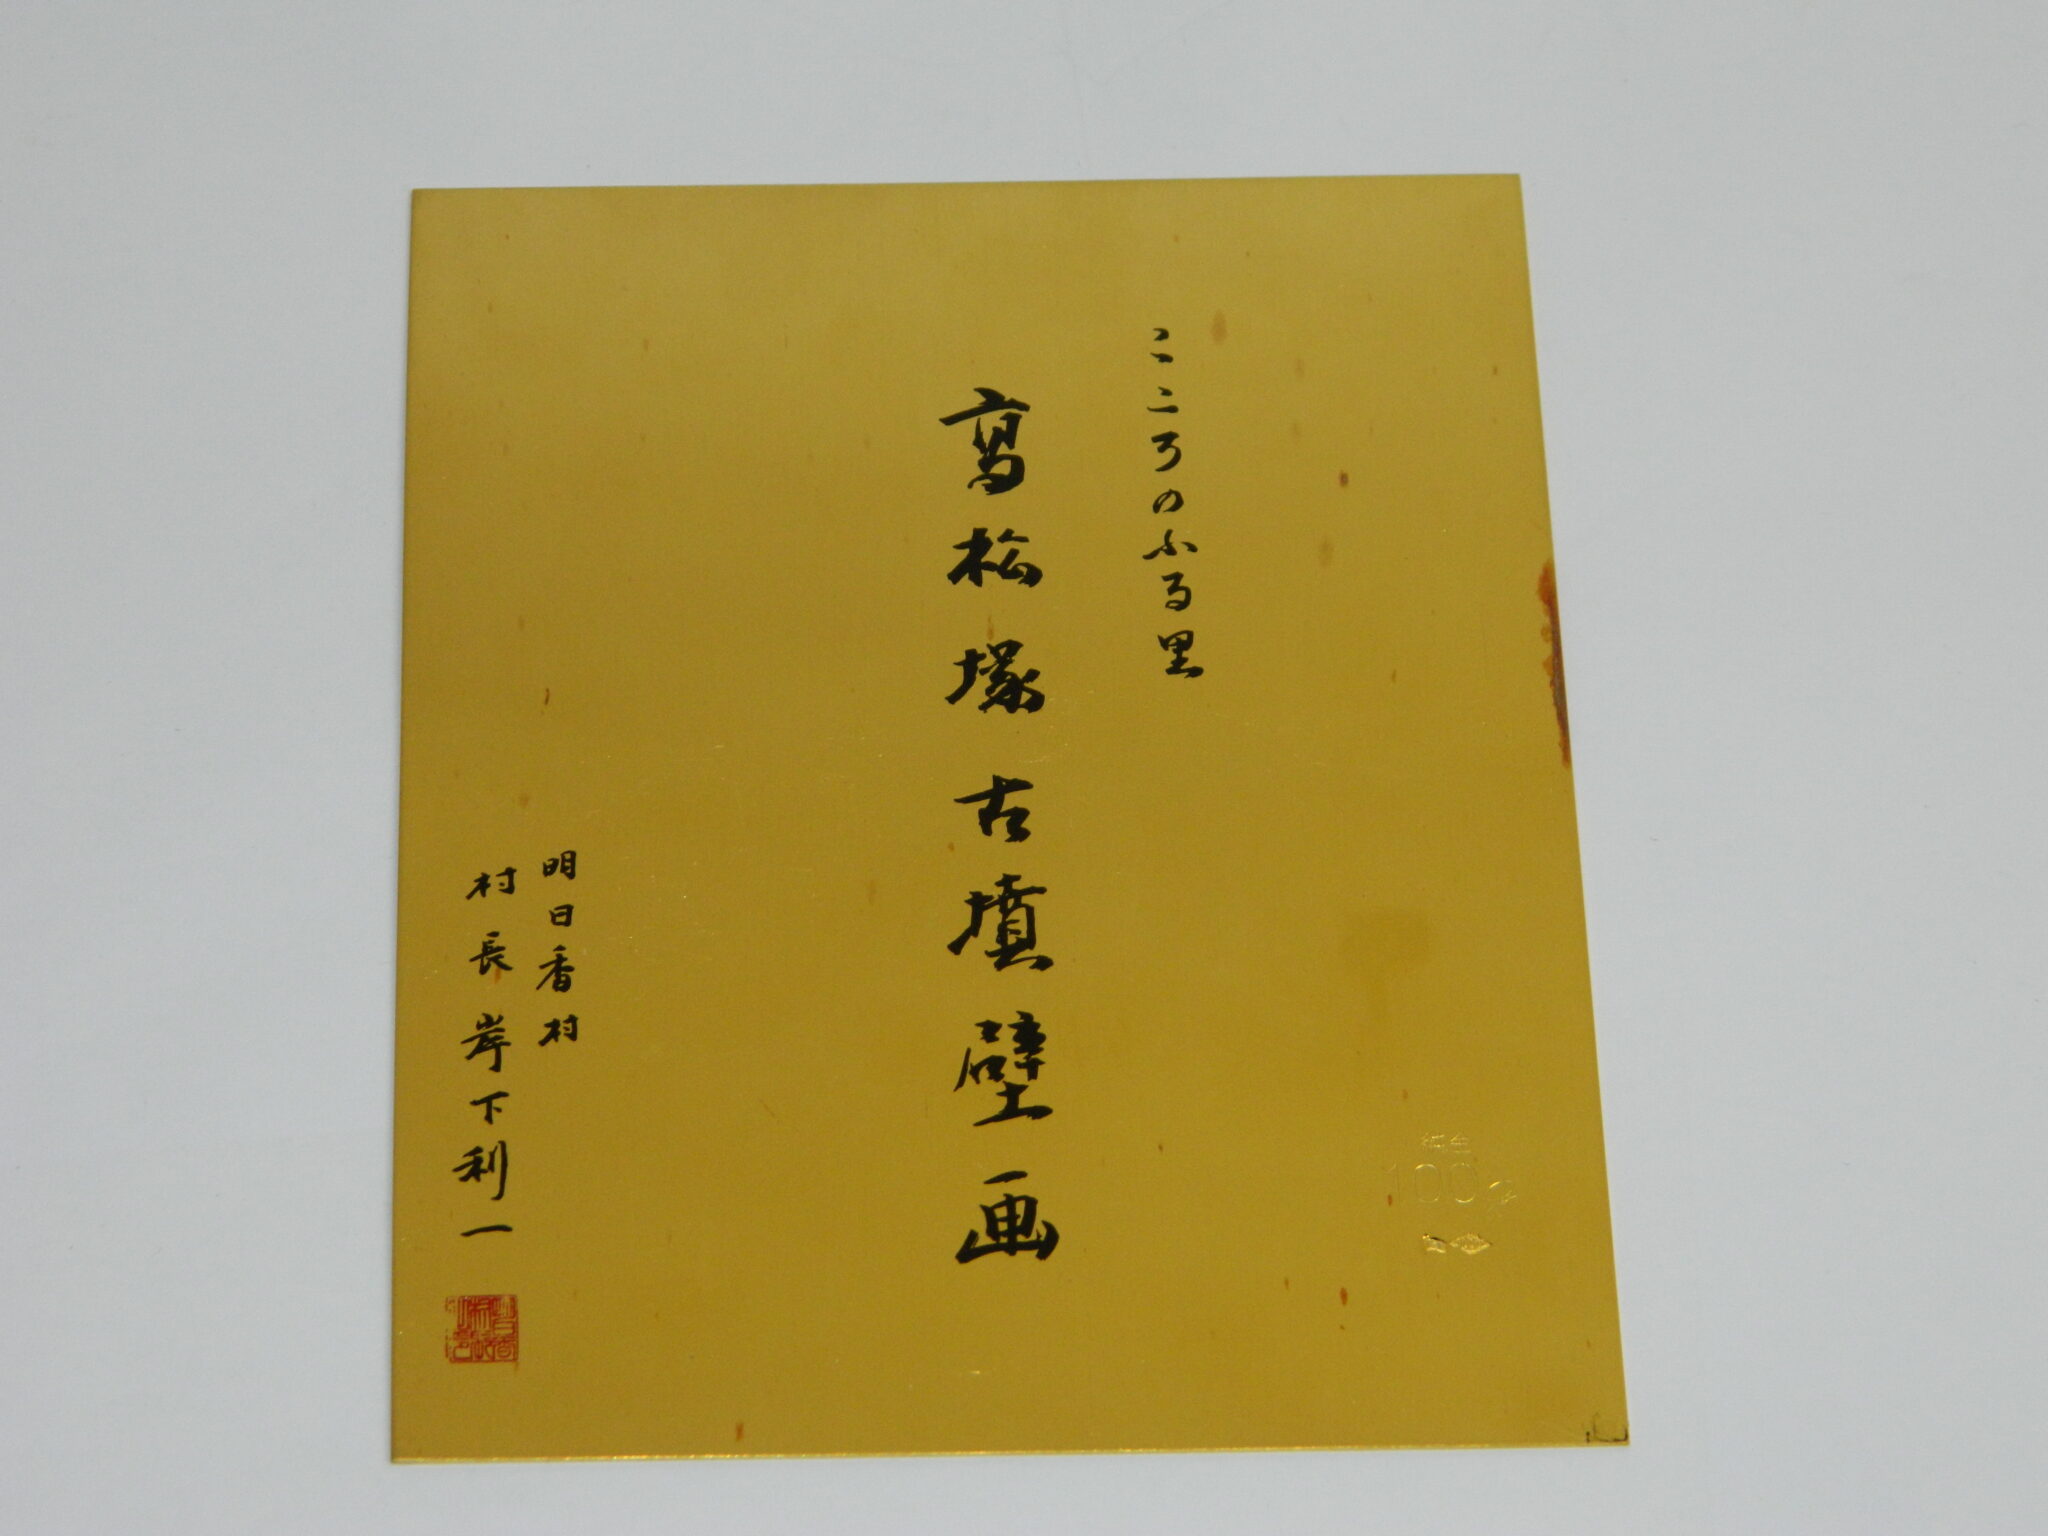 こころのふる里
高松塚古墳壁画
明日香村
村長 岸下利一
純金
100g